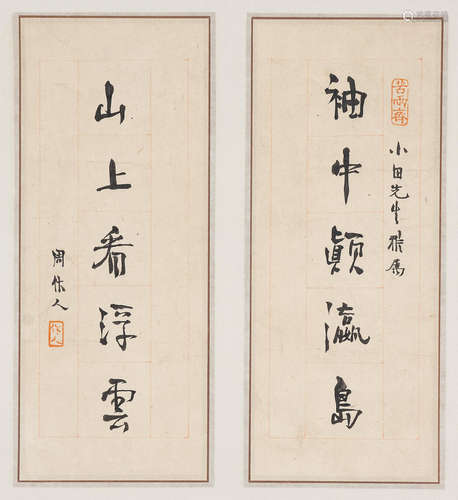 苦雨齋
小田先生雅属
袖中顚瀛島
山上看浮雲
周作人
作人